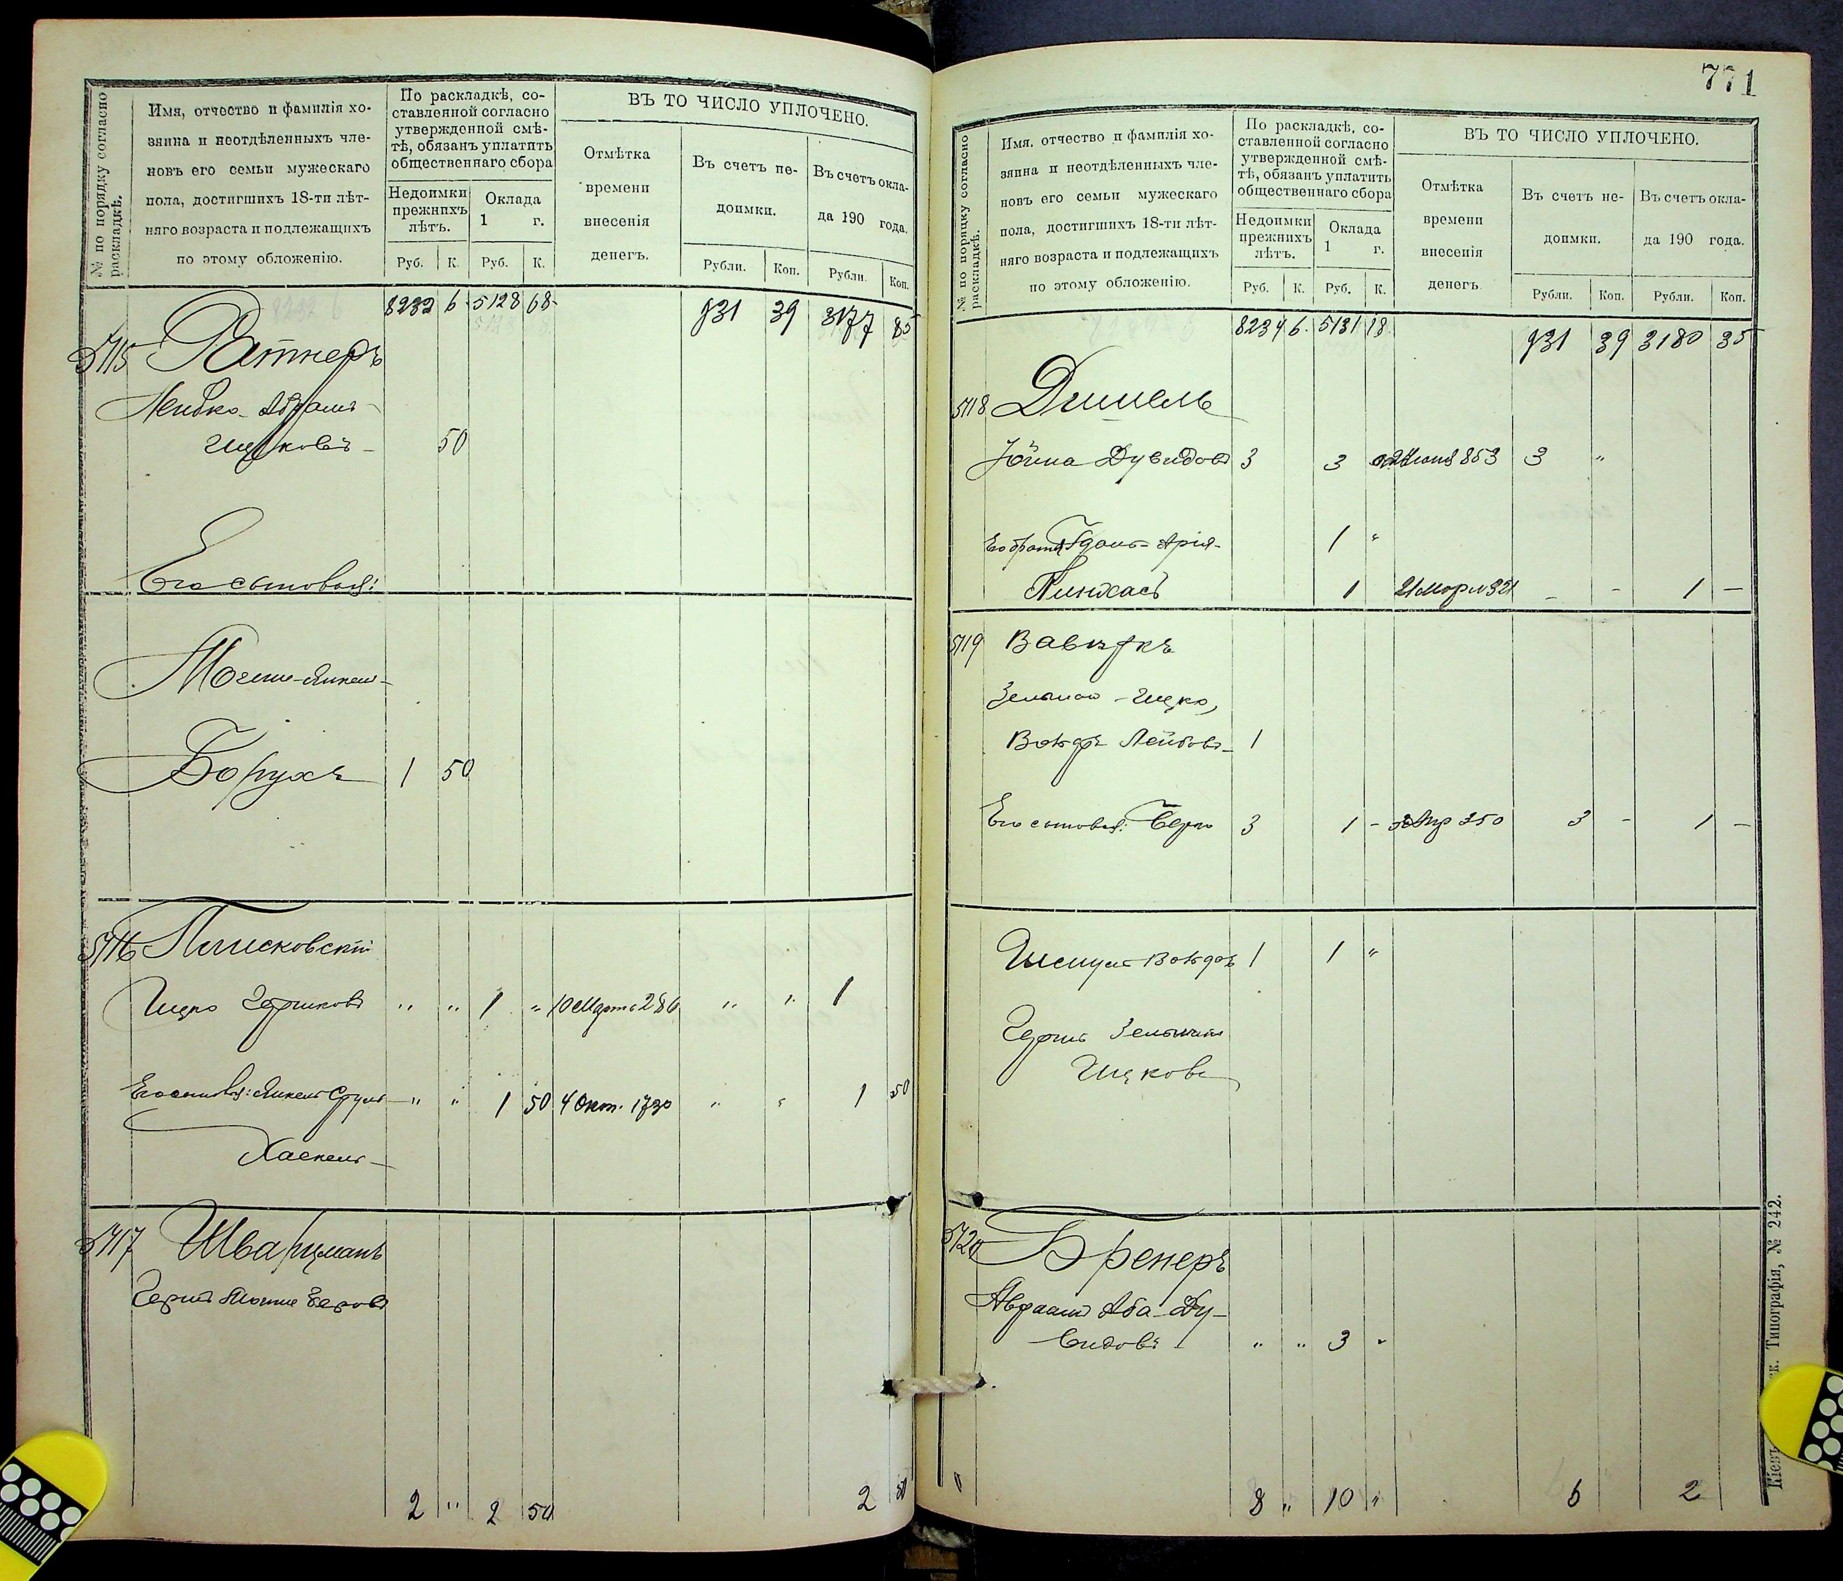 № по порядку согласно раскладкѣ.
Имя, отчество и фамилія хо-
зяина и неотдѣленныхъ чле-
новъ его семьи мужескаго
пола, достигшихъ 18-ти лѣт-
няго возраста и подлежащихъ
по этому обложенію.
По раскладкѣ, со-
ставленной согласно
утвержденной смѣ-
тѣ, обязанъ уплатить
общественнаго сбора
Недоимки
прежнихъ
лѣтъ.
Оклада
1 г.
Руб. К. Руб. К.
ВЪ ТО ЧИСЛО УПЛОЧЕНО.
Отмѣтка
времени
внесенія
денегъ.
Въ счетъ не-
доимки.
Въ счетъ окла-
да 190 года.
Рубли. Коп. Рубли. Коп.
8232 6 5128 68 931 39 3177 85
5715 Ратнеръ
Лейбко-Абрамъ
Ицковъ 50
Его сыновья:
Мошше-Янкель
Борухъ 1 50
5716 Писковскій
Ицко Гершковъ " " 1 " 10 Марта 286 " " 1
Его сыновья: Янкель Сруль " " 1 50 4 Окт. 1730 " " 1 50
Хаскель
5717 Шварцманъ
Гершъ Мошше Беровъ
2 " 2 50 2 50
771
№ по порядку согласно раскладкѣ.
Имя, отчество и фамилія хо-
зяина и неотдѣленныхъ чле-
новъ его семьи мужескаго
пола, достигшихъ 18-ти лѣт-
няго возраста и подлежащихъ
по этому обложенію.
По раскладкѣ, со-
ставленной согласно
утвержденной смѣ-
тѣ, обязанъ уплатить
общественнаго сбора
Недоимки
прежнихъ
лѣтъ.
Оклада
1 г.
Руб. К. Руб. К.
ВЪ ТО ЧИСЛО УПЛОЧЕНО.
Отмѣтка
времени
внесенія
денегъ
Въ счетъ не-
доимки.
Въ счетъ окла-
да 190 года.
Рубли. Коп. Рубли. Коп.
8234 6 5131 18 931 39 3180 35
5718
Іойна Дувидовъ 3 3 853 3 "
Его братья Арія 1 "
Пинхасъ 1 - - 1 -
5719
Ицко,
Лейбовъ 1
Его сыновья: Берко 3 1 - Апр 350 3 - 1 -
1 1 "
Гершъ Зельманъ
Ицковъ
5720 Бренеръ
Авраамъ Аба Ду-
видовъ " " 3 "
8 " 10 " 6 2
Типографія, № 242.